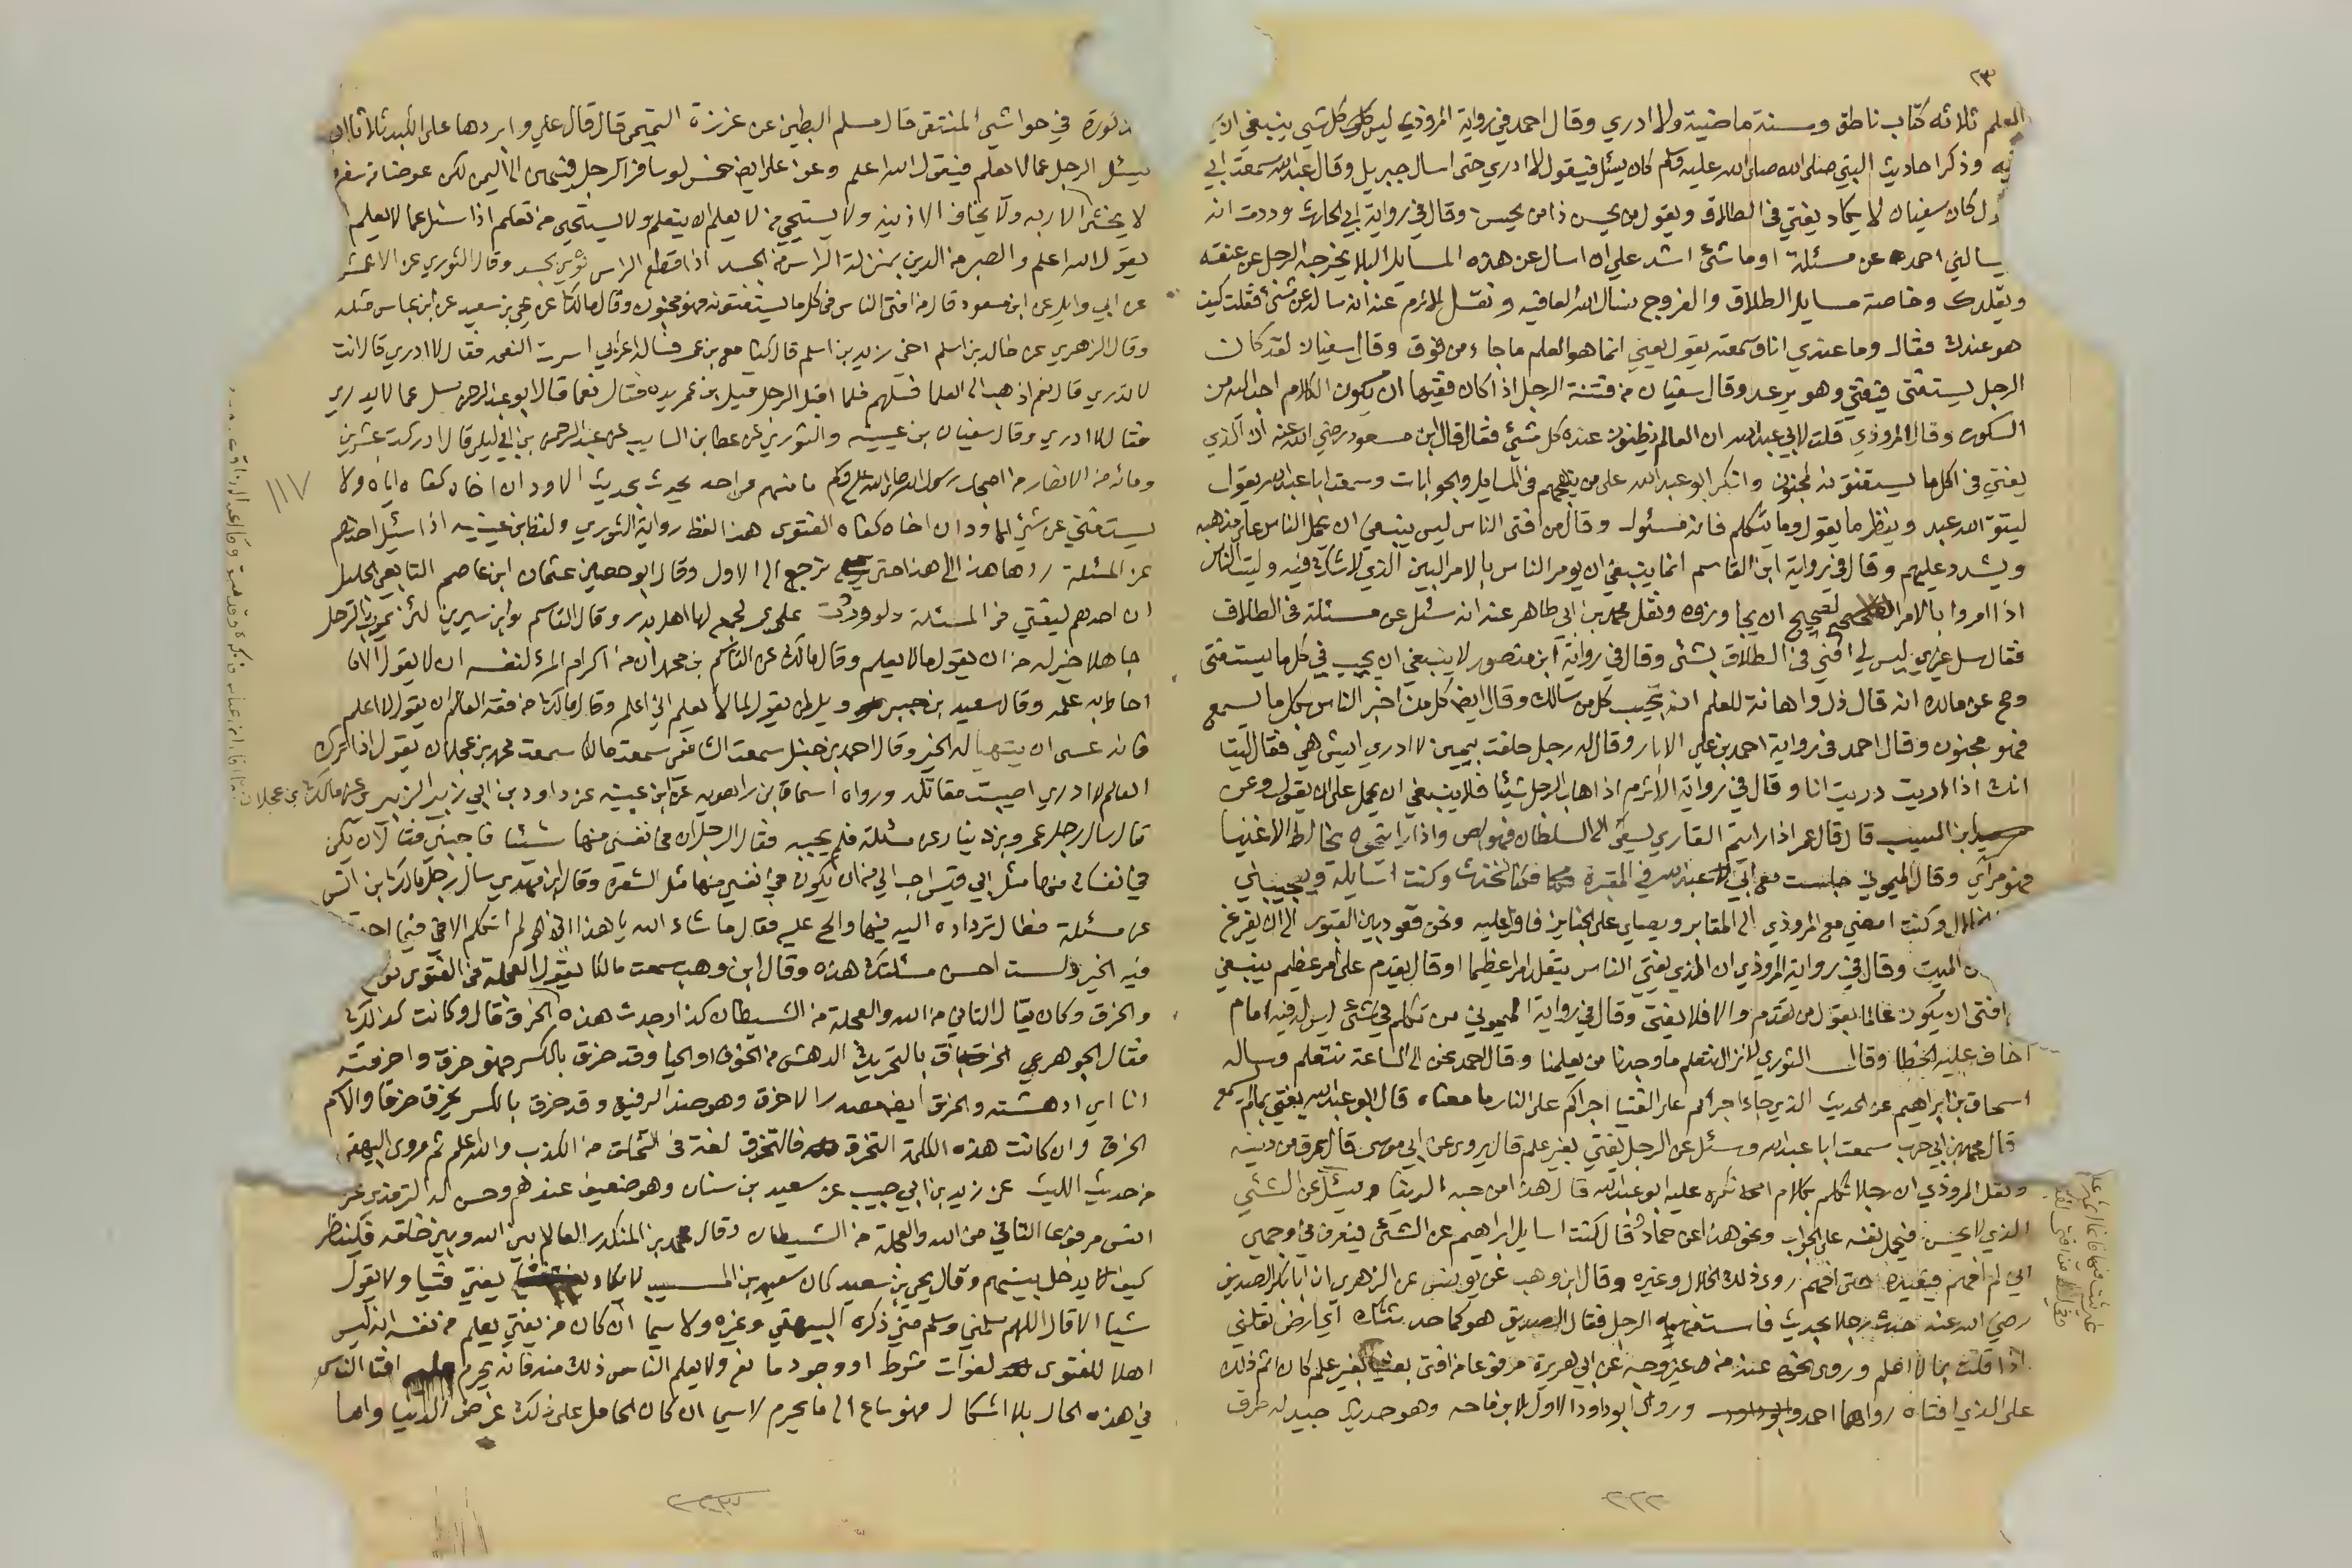 ٢٣
العلم ثلاثه كتاب ناطق وسنة ماضية ولا ادري وقال احمد في رواية المروذي ليس كل شيء ينبغي ان
فيه وذكر احاديث النبي صلى الله صلى الله عليه وسلم كان يسئل فيقول لا ادري حتى اسال جبريل وقال عبد الله سمعت ابي
كان سفيان لا يكاد يفتي في الطلاق ويقول من يحسن ذا من يحسن وقال في رواية ابي الحارث وددت انه
يسالني احمد عن مسئلة او ما شئ اشد علي ان اسال عن هذه المسايل البلا يخرجه الرجل عن عنقه
ويقلدك وخاصة مسايل الطلاق والفروج نسال الله العافيه ونقل الاثرم عنه انه ساله عن شئ فقلت كيف
هو عندك فقال وما عندي انا وسمعته يقول يعني انما هو العلم ما جاء من فوق وقال سفيان لقد كان
الرجل يستفتى فيفتي وهو يرعد وقال سفيان من فتنة الرجل اذا كان فقيها ان يكون الكلام احب اليه من
السكوت وقال المروذي قلت لابي عبد الله ان العالم يظنون عنده كل شيئ فقال قال ابن مسعود رضي الله عنه ان الذي
يفتي في كل ما يستفتونه لمجنون وانكر ابو عبد الله على من يتهجم في المسايل والجوابات وسمعت ابا عبد الله يقول
ليتق الله عبد وينظر ما يقول وما يتكلم فانه مسئول وقال من افتى الناس ليس ينبغي ان يحمل الناس على مذهبه
ويشدد عليهم وقال في رواية ابن القاسم انما ينبغي ان يومر الناس بالامر البين الذي لا شك فيه وليت الناس
اذا امروا بالامر الصحيح ان يجاوزوه ونقل محمد بن ابي طاهر عنه انه سئل عن مسئلة في الطلاق
فقال سل غيري ليس لي افتي في الطلاق بشئ وقال في رواية ابن منصور لا ينبغي ان يجيب في كل ما يستفتى
وصح عن مالك انه قال ذل واهانة للعلم ان تجيب كل من سالك وقال ايضا كل من اخبر الناس بكل ما يسمع
فهو مجنون وقال احمد في رواية احمد بن علي الابار وقال له رجل حلفت بيمين لا ادري ايش هي فقال ليت
انك اذا دريت دريت انا وقال في رواية الاثرم اذا هاب الرجل شيئا فلا ينبغي ان يحمل على ان يقول وعن
ابن المسيب قال قال عمر اذا رايتم القاري يغشى السلطان فهو لص واذا رايتموه يخالط الاغنيا
فهو مرآي وقال الميموني جلست مع ابي عبد الله في المقبرة فكنا نتحدث وكنت اسايله ويجيبني
الخلال وكنت امضي مع المروذي الى المقابر ويصلي على الجنايز فاقرا عليه ونحن قعود بين القبور الى ان يفرغ
الميت وقال في رواية المروذي ان الذي يفتي الناس يتقلد امرا عظيما او قال يقدم على امر عظيم ينبغي
افتى ان يكون عالما بقول من تقدم والا فلا يفتي وقال في رواية الميموني من تكلم في شئ ليس له فيه امام
اخاف عليه الخطا وقال الثوري لا نزال نتعلم ما وجدنا من يعلمنا وقال احمد نحن الى الساعة نتعلم وساله
اسحاق بن ابراهيم عن الحديث الذي جاء اجراكم على الفتيا اجراكم على النار ما معناه قال ابو عبد الله يفتي بما لم يسمع
قال محمد بن ابي حرب سمعت ابا عبد الله وسئل عن الرجل يفتي بغير علم قال يروى عن ابي موسى قال يمرق من دينه
ونقل المروذي ان رجلا تكلم بكلام انكره عليه ابو عبد الله قال هذا من حبه الدنيا يسئل عن الشئ
الذي لا يحسن فيحمل نفسه على الجواب ونحو هذا عن حماد قال كنت اسايل ابراهيم عن الشئ فيعرف في وجهي
اني لم افهم فيعيده حتى افهم روى ذلك الخلال وغيره وقال ابن وهب عن يونس عن الزهري ان ابا بكر الصديق
رضي الله عنه حدث رجلا بحديث فاستفهمه الرجل فقال الصديق هو كما حدثتك اي ارض تقلني
اذا قلت بما لا اعلم وروى نحوه عنه من غير وجه عن ابي هريرة مرفوعا من افتى بفتيا بغير علم كان اثم ذلك
على الذي افتاه رواهما احمد وروى ابو داود الاول لابن ماجه وهو حديث جيد له طرق
٢٢٢
مذكورة في حواشي المنتقى قال مسلم البطين عن عزرة التميمي قال قال علي وابردها على الكبد ثلاثا ان
يسئل الرجل عما لا يعلم فيقول الله اعلم وعن علي ايضا خمس لو سافر الرجل فيهن الى اليمن لكن عوضا من سفره
لا يخشى الا ربه ولا يخاف الا ذنبه ولا يستحي من لا يعلم ان يتعلم ولا يستحي من تعلم اذا سئل عما لا يعلم ان
يقول الله اعلم والصبر من الدين بمنزلة الراس من الجسد اذا قطع الراس توى الجسد وقال الثوري عن الاعمش
عن ابي وايل عن ابن مسعود قال من افتى الناس في كل ما يستفتونه فهو مجنون وقال مالك عن يحيى بن سعيد عن ابن عباس مثله
وقال الزهري عن خالد بن اسلم اخي زيد بن اسلم قال كنا مع ابن عمر فساله اعرابي اترث العمه فقال لا ادري قال انت
لا تدري قال نعم اذهب الى العلما فسلهم فلما ادبر الرجل قبل ابن عمر يده فقال نعما قال ابو عبد الرحمن سل عما لا يدري
فقال لا ادري وقال سفيان بن عيينه والثوري عن عطا بن السايب عن عبد الرحمن بن ابي ليلى قال ادركت عشرين
ومائه من الانصار من اصحاب رسول الله صلى الله عليه وسلم ما منهم من احد يحدث بحديث الا ود ان اخاه كفاه اياه ولا
يستفتى عن شئ الا ود ان اخاه كفاه الفتوى هذا لفظ رواية الثوري ولفظ ابن عيينه اذا سئل احدهم
عن المسئلة ردها هذا الى هذا حتى ترجع الى الاول وقال ابو حصين عثمان ابن عاصم التابعي الجليل
ان احدهم ليفتي في المسئلة ولو وردت على عمر لجمع لها اهل بدر وقال القاسم وابن سيرين لئن يموت الرجل
جاهلا خير له من ان يقول ما لا يعلم وقال مالك عن القاسم بن محمد ان من اكرام المرء لنفسه ان لا يقول الا ما
احاط به علمه وقال سعيد بن جبير ويل لمن يقول لما لا يعلم اني اعلم وقال مالك من فقه العالم ان يقول لا اعلم
فانه عسى ان يتهيا له الخير وقال احمد بن حنبل سمعت الشافعي سمعت مالكا سمعت محمد بن عجلان يقول اذا ترك
العالم لا ادري اصيبت مقاتله ورواه اسحاق بن راهويه عن ابن عيينه عن داود بن ابي زبير الزبيري عن مالك بن عجلان
قال سال رجل عمرو بن دينار عن مسئلة فلم يجبه فقال الرجل ان في نفسي منها شيئا فاجبني فقال لان يكن
في نفسك منها مثل ابي قبيس احب الي من ان يكون في نفسي منها مثل الشعرة وقال ابن مهدي سال رجل مالك بن انس
عن مسئلة فطال ترداده اليه فيها والح عليه فقال ما شاء الله يا هذا اني لم اتكلم الا في فيما احتسب
فيه الخير ولست احسن مسئلتك هذه وقال ابن وهب سمعت مالكا يقول العجلة في الفتوى نوع
والخرق وكان يقال التاني من الله والعجلة من الشيطان كذا وجدت هذه الخرق فقال وكانت كذلك
فقال الجوهري الخرق بالتحريك الدهش من الخوف او الحيا وقد خرق بالكسر فهو خرق واخرقته
انا اي ادهشته والخرق ايضا مصدر الاخرق وهو ضد الرفيق وقد خرق بالكسر يخرق خرقا والاسم
الخرق وان كانت هذه الكلمة التخرق فالتخرق لغة في التخلق من الكذب والله اعلم ثم روى البيهقي
من حديث الليث عن زيد بن ابي حبيب عن سعيد بن سنان وهو ضعيف عندهم وحسن له الترمذي عن
انس مرفوعا التاني من الله والعجلة من الشيطان وقال محمد بن المنكدر العالم بين الله وبين خلقه فلينظر
كيف يدخل بينهم وقال يحيى بن سعيد كان سعيد بن المسيب لا يكاد يفتي فتيا ولا يقول
شيا الا قال اللهم سلمني وسلم مني ذكره البيهقي وغيره ولا سيما ان كان من يفتي يعلم من نفسه انه ليس
اهلا للفتوى لفوات شرط او وجود مانع ولا يعلم الناس ذلك منه فانه يحرم عليه افتا الناس
في هذه الحال بلا اشكال فهو يسارع الى ما يحرم لا سيما ان كان الحامل على ذلك غرض الدنيا واما
١١٧